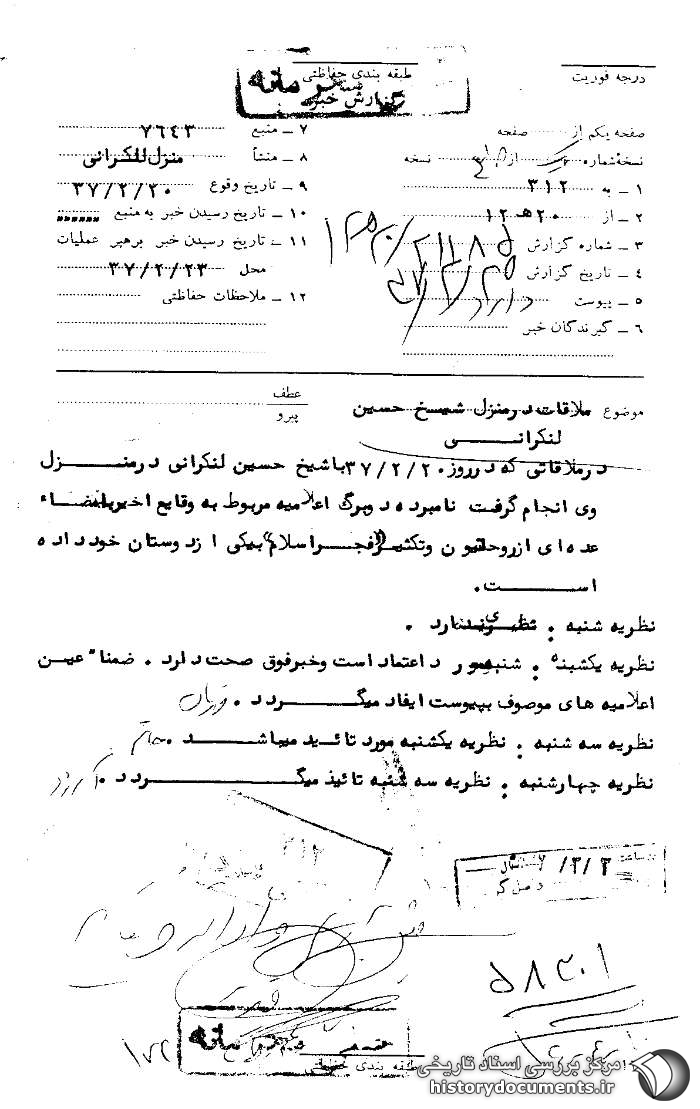 درجه فوریت
طبقه بندی حفاظتی
محرمانه
گزارش خبر
صفحه یکم از صفحه
نسخهٔ شماره یک از نسخه
۱ ـ به ۳۱۲
۲ ـ از ۲۰ هـ ۱۲
۳ ـ شماره گزارش
۴ ـ تاریخ گزارش
۵ ـ پیوست دارد
۶ ـ گیرندگان خبر
۷ ـ منبع ۷۶۴۳
۸ ـ منشأ منزل لنکرانی
۹ ـ تاریخ وقوع ۳۷/۲/۲۰
۱۰ ـ تاریخ رسیدن خبر به منبع
۱۱ ـ تاریخ رسیدن خبر برهبر عملیات
محل ۳۷/۲/۲۳
۱۲ ـ ملاحظات حفاظتی
موضوع ملاقات در منزل شیخ حسین
لنکرانی
عطف
پیرو
در ملاقاتی که در روز ۳۷/۲/۲۰ با شیخ حسین لنکرانی در منزل
وی انجام گرفت نامبرده دو برگ اعلامیه مربوط به وقایع اخیر بامضاء
عده ای از روحانیون و تکثیر "فجر اسلام" بیکی از دوستان خود داده
است.
نظریه شنبه : نظری ندارد .
نظریه یکشنبه : شنبه مورد اعتماد است و خبر فوق صحت دارد . ضمناً عین
اعلامیه های موصوف بپیوست ایفاد میگردد .
نظریه سه شنبه : نظریه یکشنبه مورد تائید میباشد .
نظریه چهارشنبه : نظریه سه شنبه تائید میگردد .
۳۱۲
۵۸۳۰۱
محرمانه
طبقه بندی حفاظتی
مرکز بررسی اسناد تاریخی
historydocuments.ir